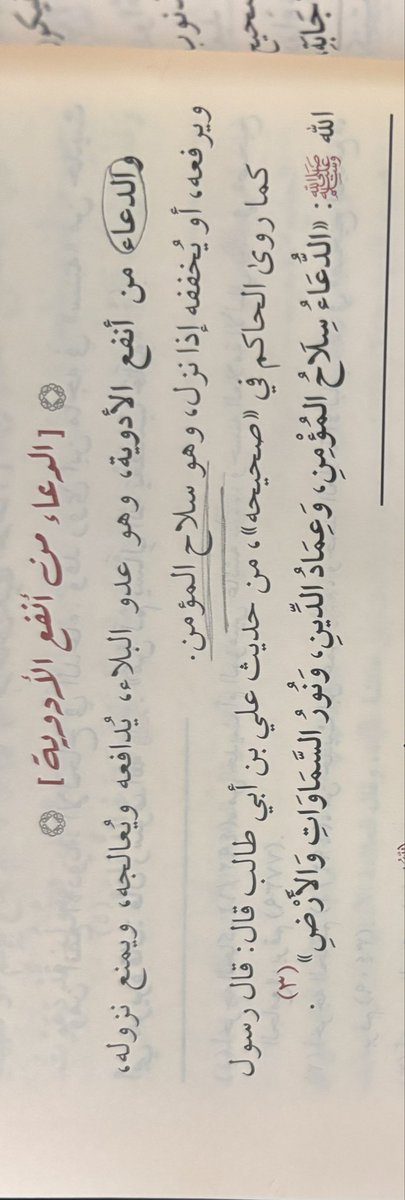 [الدعاء من أنفع الأدوية]
والدعاء من أنفع الأدوية، وهو عدو البلاء، يُدافعه ويُعالجه، ويمنع نزوله،
ويرفعه، أو يُخففه إذا نزل، وهو سلاح المؤمن.
كما روىٰ الحاكم في «صحيحه»، من حديث علي بن أبي طالب قال: قال رسول
الله ﷺ: «الدُّعَاءُ سِلَاحُ المُؤْمِنِ، وَعِمَادُ الدِّينِ، وَنُورُ السَّمَاوَاتِ وَالأَرْضِ» (٣).